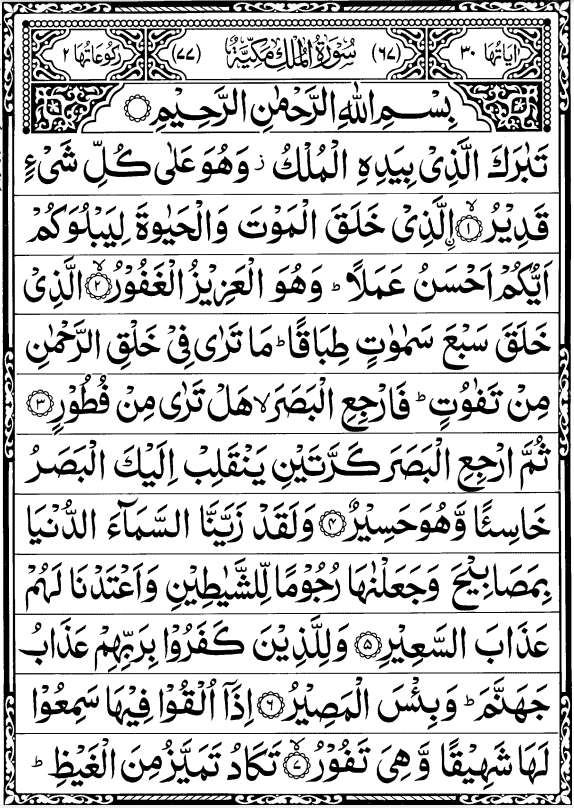 اٰیَاتُهَا ۳۰ (۶۷) سُوْرَةُ الْمُلْكِ مَكِّیَّةٌ (۷۷) رُكُوْعَاتُهَا ۲
بِسْمِ اللّٰهِ الرَّحْمٰنِ الرَّحِیْمِ
تَبٰرَكَ الَّذِیْ بِیَدِهِ الْمُلْكُ ز وَهُوَ عَلٰی كُلِّ شَیْءٍ
قَدِیْرُ ۙ﴿۱﴾ ۨالَّذِیْ خَلَقَ الْمَوْتَ وَالْحَیٰوةَ لِیَبْلُوَكُمْ
اَیُّكُمْ اَحْسَنُ عَمَلًا ؕ وَهُوَ الْعَزِیْزُ الْغَفُوْرُ ۙ﴿۲﴾ الَّذِیْ
خَلَقَ سَبْعَ سَمٰوٰتٍ طِبَاقًا ؕ مَا تَرٰی فِیْ خَلْقِ الرَّحْمٰنِ
مِنْ تَفٰوُتٍ ؕ فَارْجِعِ الْبَصَرَ ۙ هَلْ تَرٰی مِنْ فُطُوْرٍ ﴿۳﴾
ثُمَّ ارْجِعِ الْبَصَرَ كَرَّتَیْنِ یَنْقَلِبْ اِلَیْكَ الْبَصَرُ
خَاسِئًا وَّهُوَ حَسِیْرٌ ﴿۴﴾ وَلَقَدْ زَیَّنَّا السَّمَآءَ الدُّنْیَا
بِمَصَابِیْحَ وَجَعَلْنٰهَا رُجُوْمًا لِّلشَّیٰطِیْنِ وَاَعْتَدْنَا لَهُمْ
عَذَابَ السَّعِیْرِ ﴿۵﴾ وَلِلَّذِیْنَ كَفَرُوْا بِرَبِّهِمْ عَذَابُ
جَهَنَّمَ ؕ وَبِئْسَ الْمَصِیْرُ ﴿۶﴾ اِذَآ اُلْقُوْا فِیْهَا سَمِعُوْا
لَهَا شَهِیْقًا وَّهِیَ تَفُوْرُ ۙ﴿۷﴾ تَكَادُ تَمَیَّزُ مِنَ الْغَیْظِ ؕ